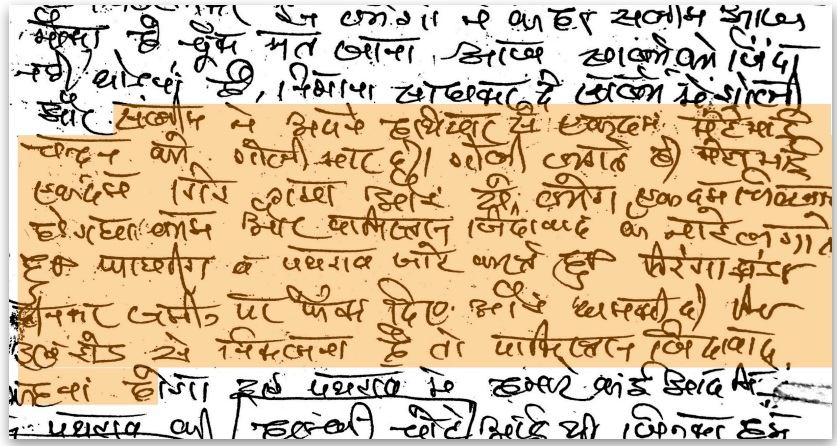 ने कहा सलीम आज
मौका है तुम मत जाना, आज सालो को जिंदा
नहीं छोड़ना है, निशाना साधकर दे सालो को गोली
और सलीम ने अपने हथियार से एकदम मेरे भाई
चन्दन को गोली मार दी। गोली लगते ही मेरा भाई
एकदम गिर गया और ये लोग एकदम
हो गया काम और पाकिस्तान जिंदाबाद के नारे लगाते
हुए फायरिंग व पथराव करते हुए तिरंगा झंडा
जमीन पर फेंक दिए और धमकी दी कि
इस रोड से निकलना है तो पाकिस्तान जिंदाबाद
कहना होगा इस पथराव में हमारे कई
पथराव की हल्की चोटें आई थी जिनका हम